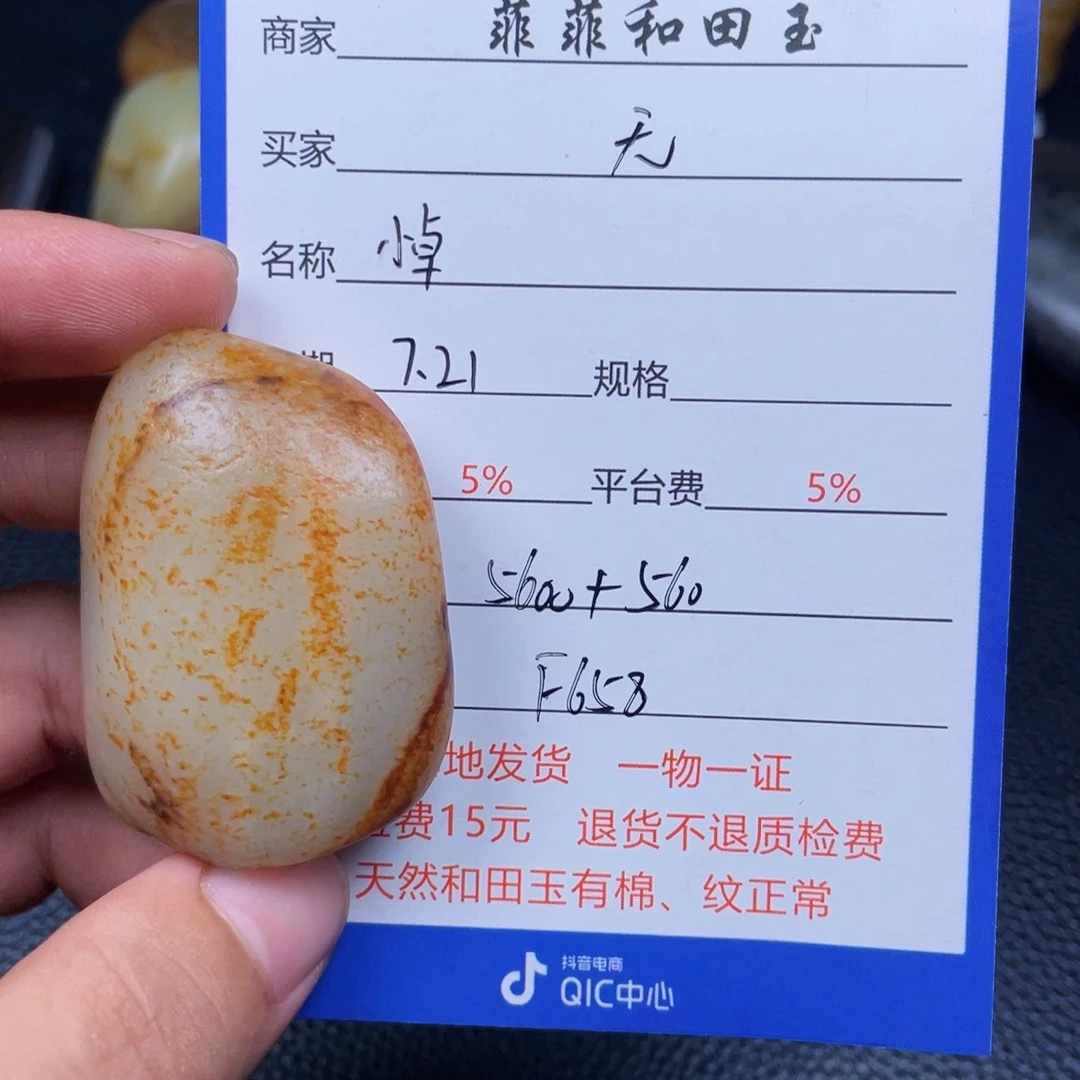 商家 菲菲和田玉
买家 无
名称
期 7.21 规格
5% 平台费 5%
5600+560
F658
地发货 一物一证
费15元 退货不退质检费
天然和田玉有棉、纹正常
抖音电商
QIC中心